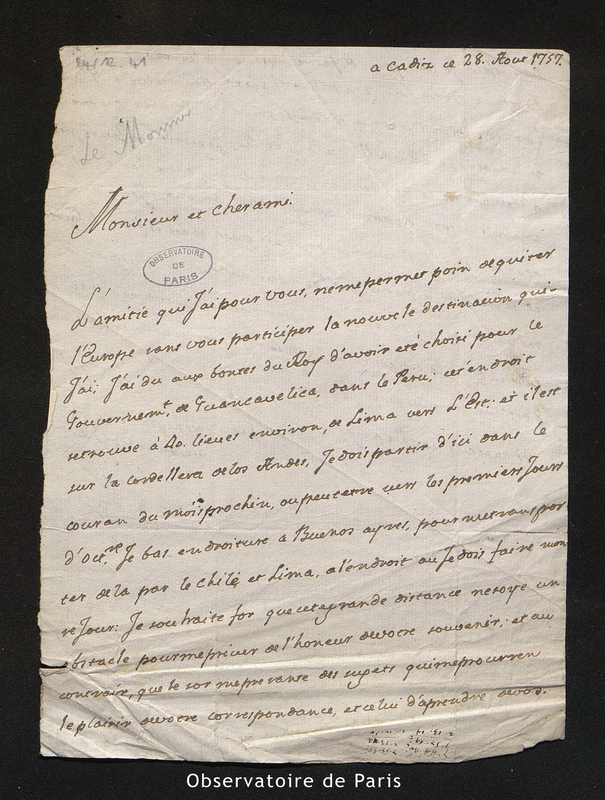 a Cadiz ce 28. Aout 1757.
Le Monnier
Monsieur et cher ami.
OBSERVATOIRE
DE
PARIS
L'amitié qui J'ai pour vous, ne me permet poin de quiter
l'Europe sans vous participer la nouvele destinacion qui
J'ai; J'ai du aux bontes du Roy d'avoir eté choisi pour le
Gouvernem.t de Guancavelica, dans le Peru; cet éndroit
se trouve á 40. lieues environ, de Lima vers L'Est; et il est
sur la Cordellera de los Andes, Je dois partir d'ici dans le
couran du mois prochin, ou peut etre vers les premiers Jours
d'Oct.re Je bas en droiture a Buenos ayres, pour me transpor
ter de la par le Chilé, et Lima, a l'éndroit ou Je dois faire mon
seJour: Je souhaite for que cete grande distance ne soye un
obstacle pour me priver de l'honeur de votre souvenir; et au
contraire, que le sor me presante des sujets qui me procuren
le plaisir de votre correspondance, et celui d'aprendre de vos.
Observatoire de Paris